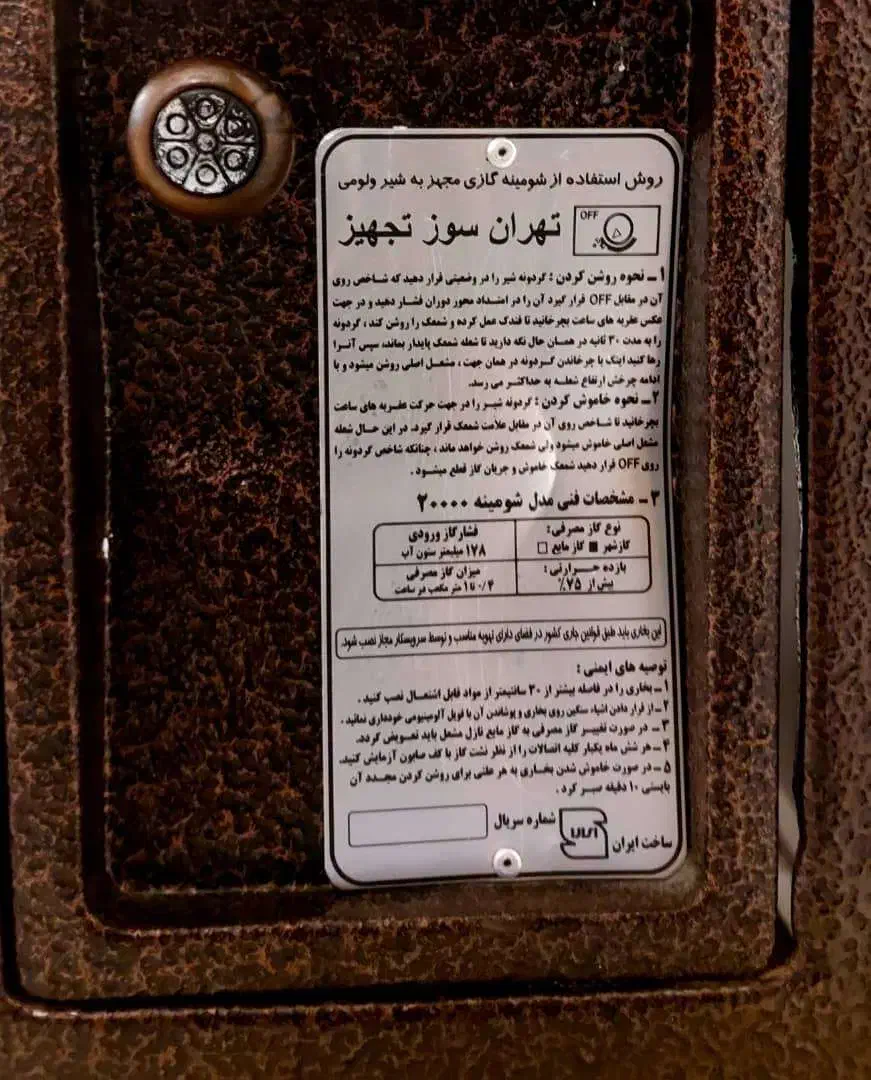 روش استفاده از شومینه گازی مجهز به شیر ولومی
OFF
تهران سوز تجهیز
۱ـ نحوه روشن کردن : گردونه شیر را در وضعیتی قرار دهید که شاخص روی
آن در مقابل OFF قرار گیرد آن را در امتداد محور دوران فشار دهید و در جهت
عکس عقربه های ساعت بچرخانید تا فندک عمل کرده و شمعک را روشن کند ، گردونه
را به مدت ۳۰ ثانیه در همان حال نگه دارید تا شعله شمعک پایدار بماند، سپس آنرا
رها کنید اینک با چرخاندن گردونه در همان جهت ، مشعل اصلی روشن میشود و با
ادامه چرخش ارتفاع شعله به حداکثر می رسد.
۲ـ نحوه خاموش کردن : گردونه شیر را در جهت حرکت عقربه های ساعت
بچرخانید تا شاخص روی آن در مقابل علامت شمعک قرار گیرد، در این حال شعله
مشعل اصلی خاموش میشود ولی شمعک روشن خواهد ماند ، چنانکه شاخص گردونه را
روی OFF قرار دهید شمعک خاموش و جریان گاز قطع میشود .
۳ـ مشخصات فنی مدل شومینه ۲۰۰۰۰
نوع گاز مصرفی :
گازشهر ■ گاز مایع □
فشارگاز ورودی
۱۷۸ میلیمتر ستون آب
بازده حرارتی :
بیش از ۷۵٪
میزان گاز مصرفی
۰/۴ تا ۱ متر مکعب در ساعت
این بخاری باید طبق قوانین جاری کشور در فضای دارای تهویه مناسب و توسط سرویسکار مجاز نصب شود.
توصیه های ایمنی :
۱ـ بخاری را در فاصله بیشتر از ۳۰ سانتیمتر از مواد قابل اشتعال نصب کنید .
۲ـ از قرار دادن اشیاء سنگین روی بخاری و پوشاندن آن با فویل آلومینیومی خودداری نمائید .
۳ـ در صورت تغییر گاز مصرفی به گاز مایع نازل مشعل باید تعویض گردد.
۴ـ هر شش ماه یکبار کلیه اتصالات را از نظر نشت گاز با کف صابون آزمایش کنید.
۵ـ در صورت خاموش شدن بخاری به هر علتی برای روشن کردن مجدد آن
بایستی ۱۰ دقیقه صبر کرد .
شماره سریال
ساخت ایران